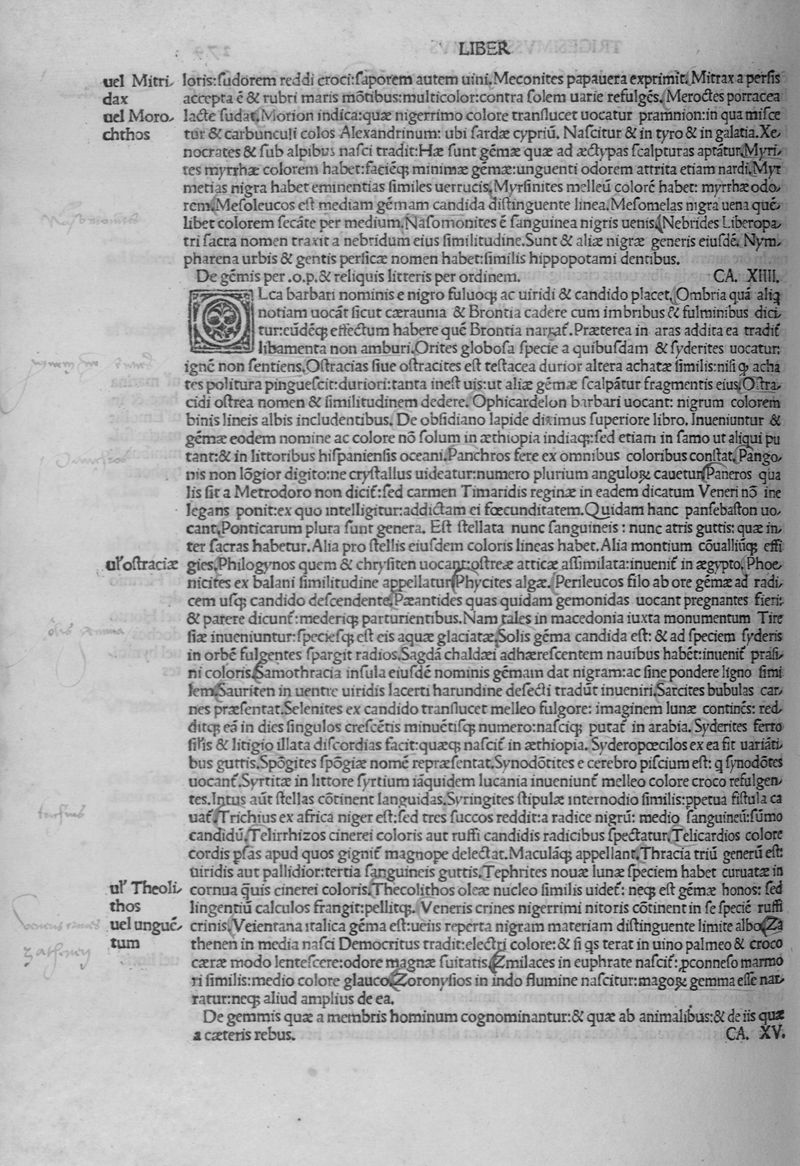 LIBER
uel Mitri-
dax
uel Moro-
chthos
loris:ſudorem reddi croci:ſaporem autem uini.Meconites papauera exprimit.Mitrax a perſis
accepta ē & rubri maris mōtibus:multicolor:contra ſolem uarie refulgēs.Meroctes porracea
lacte ſudat.Morion indica:quæ nigerrimo colore tranſlucet uocatur pramnion:in qua miſce
tur & carbunculi colos Alexandrinum: ubi ſardæ cypriū. Naſcitur & in tyro & in galatia.Xe-
nocrates & ſub alpibus naſci tradit:Hæ ſunt gēmæ quæ ad æctypas ſcalpturas aptātur.Myri-
tes myrrhæ colorem habet:faciēq; minimæ gēmæ:unguenti odorem attrita etiam nardi.Myr
metias nigra habet eminentias ſimiles uerrucis.Myrſinites melleū colorē habet: myrrhæ odo-
rem.Meſoleucos eſt mediam gēmam candida diſtinguente linea.Meſomelas nigra uena quē-
libet colorem ſecāte per medium.Naſomonites ē ſanguinea nigris uenis.Nebrides Liberopa-
tri ſacra nomen traxit a nebridum eius ſimilitudine.Sunt & aliæ nigræ generis eiuſdē. Nym-
pharena urbis & gentis perſicæ nomen habet:ſimilis hippopotami dentibus.
De gēmis per .o.p.& reliquis litteris per ordinem. CA. XIIII.
OLca barbari nominis e nigro fuluoq; ac uiridi & candido placet.Ombria quā aliq
notiam uocāt ſicut cæraunia & Brontia cadere cum imbribus & fulminibus dici-
tur:eūdēq; effectum habere quē Brontia narrat̃. Præterea in aras addita ea tradit̃
libamenta non amburi.Orites globoſa ſpecie a quibuſdam & ſyderites uocatur:
ignē non ſentiens.Oſtracias ſiue oſtracites eſt teſtacea durior altera achatæ ſimilis:niſi ꝙ acha
tes politura pingueſcit:duriori:tanta ineſt uis:ut aliæ gēmæ ſcalpātur fragmentis eius.Oſtra-
cidi oſtrea nomen & ſimilitudinem dedere. Ophicardelon barbari uocant: nigrum colorem
binis lineis albis includentibus. De obſidiano lapide diximus ſuperiore libro. Inueniuntur &
gēmæ eodem nomine ac colore nō ſolum in æthiopia indiaq;:ſed etiam in ſamo ut aliqui pu
tant:& in littoribus hiſpanienſis oceani.Panchros fere ex omnibus coloribus conſtat.Pango-
nis non lōgior digito:ne cryſtallus uideatur:numero plurium anguloꝝ cauetur.Paneros qua
lis ſit a Metrodoro non dicit̃:ſed carmen Timaridis reginæ in eadem dicatum Veneri nō ine
legans ponit:ex quo intelligitur:addictam ei fœcunditatem.Quidam hanc panſebaſton uo-
cant.Ponticarum plura ſunt genera. Eſt ſtellata nunc ſanguineis : nunc atris guttis: quæ in-
ter ſacras habetur.Alia pro ſtellis eiuſdem coloris lineas habet.Alia montium cōualliūq; effi
ul᷑ oſtraciæ
gies.Philogynos quem & chryſiten uocant:oſtreæ atticæ aſſimilata:inuenit̃ in ægypto.Phoe-
nicites ex balani ſimilitudine appellatur.Phycites algæ. Perileucos filo ab ore gēmæ ad radi-
cem uſq; candido deſcendente.Pæantides quas quidam gemonidas uocant pregnantes fieri:
& parere dicunt̃:mederiq; parturientibus.Nam tales in macedonia iuxta monumentum Tire
ſiæ inueniuntur:ſpecieſq; eſt eis aquæ glaciatæ.Solis gēma candida eſt: & ad ſpeciem ſyderis
in orbē fulgentes ſpargit radios.Sagdā chaldæi adhæreſcentem nauibus habēt:inuenit̃ praſi-
ni coloris.Samothracia inſula eiuſdē nominis gēmam dat nigram:ac ſine pondere ligno ſimi
lem.Sauriten in uentre uiridis lacerti harundine deſecti tradūt inueniri.Sarcites bubulas car-
nes præſentat.Selenites ex candido tranſlucet melleo fulgore: imaginem lunæ continēs: red-
ditq; eā in dies ſingulos creſcētis minuētiſq; numero:naſciq; putat̃ in arabia. Syderites ferro
ſil᷑is & litigio illata diſcordias facit:quæq; naſcit̃ in æthiopia. Syderopœcilos ex ea fit uariāti-
bus guttis.Spōgites ſpōgiæ nomē repræſentat.Synodōtites e cerebro piſcium eſt: q ſynodōtes
uocant̃.Syrtitæ in littore ſyrtium iāquidem lucania inueniunt̃ melleo colore croco refulgen-
tes.Intus aūt ſtellas cōtinent languidas.Syringites ſtipulæ internodio ſimilis:ꝑpetua fiſtula ca
uat̃.Trichius ex africa niger eſt:ſed tres ſuccos reddit:a radice nigrū: medio ſanguineū:ſūmo
candidū.Telirrhizos cinerei coloris aut ruffi candidis radicibus ſpectatur.Telicardios colore
cordis pſas apud quos gignit̃ magnope delectat.Maculāq; appellant.Thracia triū generū eſt:
uiridis aut pallidior:tertia ſanguineis guttis.Tephrites nouæ lunæ ſpeciem habet curuatæ in
ul᷑ Theoli-
thos
uel unguē-
tum
cornua q̄uis cinerei coloris.Thecolithos oleæ nucleo ſimilis uidet̃: neq; eſt gēmæ honos: ſed
lingentiū calculos frangit:pellitq;. Veneris crines nigerrimi nitoris cōtinent in ſe ſpeciē ruffi
crinis.Veientana italica gēma eſt:ueiis reperta nigram materiam diſtinguente limite albo.Za
thenen in media naſci Democritus tradit:electri colore:& ſi qs terat in uino palmeo & croco
cæræ modo lenteſcere:odore magnæ ſuitatis.Zmilaces in euphrate naſcit̃:ꝓconneſo marmo
ri ſimilis:medio colore glauco.Zoronyſios in indo flumine naſcitur:magoꝝ gemma eſſe nar-
ratur:neq; aliud amplius de ea.
De gemmis quæ a membris hominum cognominantur:& quæ ab animalibus:& de iis quæ
a cæteris rebus. CA. XV.